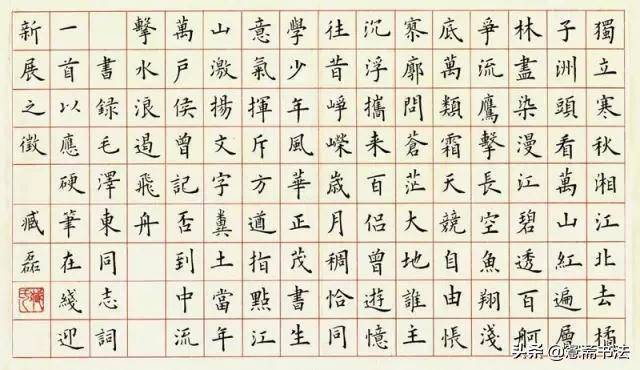 獨立寒秋湘江北去橘
子洲頭看萬山紅遍層
林盡染漫江碧透百舸
爭流鷹擊長空魚翔淺
底萬類霜天競自由悵
寥廓問蒼茫大地誰主
沉浮攜来百侶曾遊憶
往昔崢嶸歲月稠恰同
學少年風華正茂書生
意氣揮斥方遒指點江
山激揚文字糞土當年
萬戶侯曾記否到中流
擊水浪遏飛舟
書録毛澤東同志詞
一首以應硬筆在綫迎
新展之徵 臧磊
头条 @斋书法